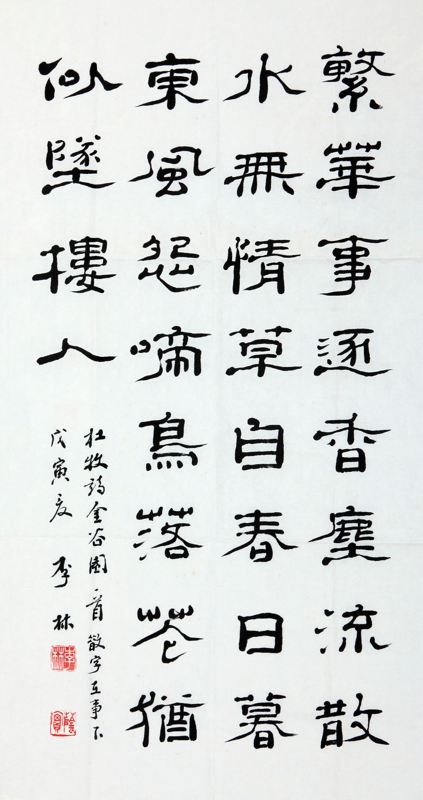 繁華事逐香塵流散
水無情草自春日暮
東風怨啼鳥落花猶
似墜樓人
杜牧詩金谷園一首散字在事下
戊寅夏 李林